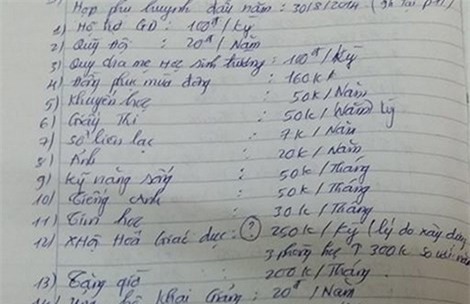 Họp phụ huynh đầu năm : 30/8/2014 (9h tại
1) Hỗ trợ GD : 100đ / Kỳ
2) Quỹ Đội : 20đ / Năm
3) Quỹ cha mẹ học sinh trường : 100đ / Kỳ
4) Đồng phục mùa đông : 160k
5) Khuyến học : 50k / Năm
6) Giấy Thi : 50k / Năm
7) Sổ liên lạc : 7k / Năm
8) Ảnh : 20k / Năm
9) Kỹ năng sống : 50k / Tháng
10) Tiếng Anh : 50k / Tháng
11) Tin học : 30k / Tháng
12) XHội Hoá Giáo dục : (?) 250k / Kỳ (lý do xây dựng
3 phòng học ↑ 300k so với năm
13) Tăng giờ : 200k / Tháng
14) khai Giảng : 20đ / Năm